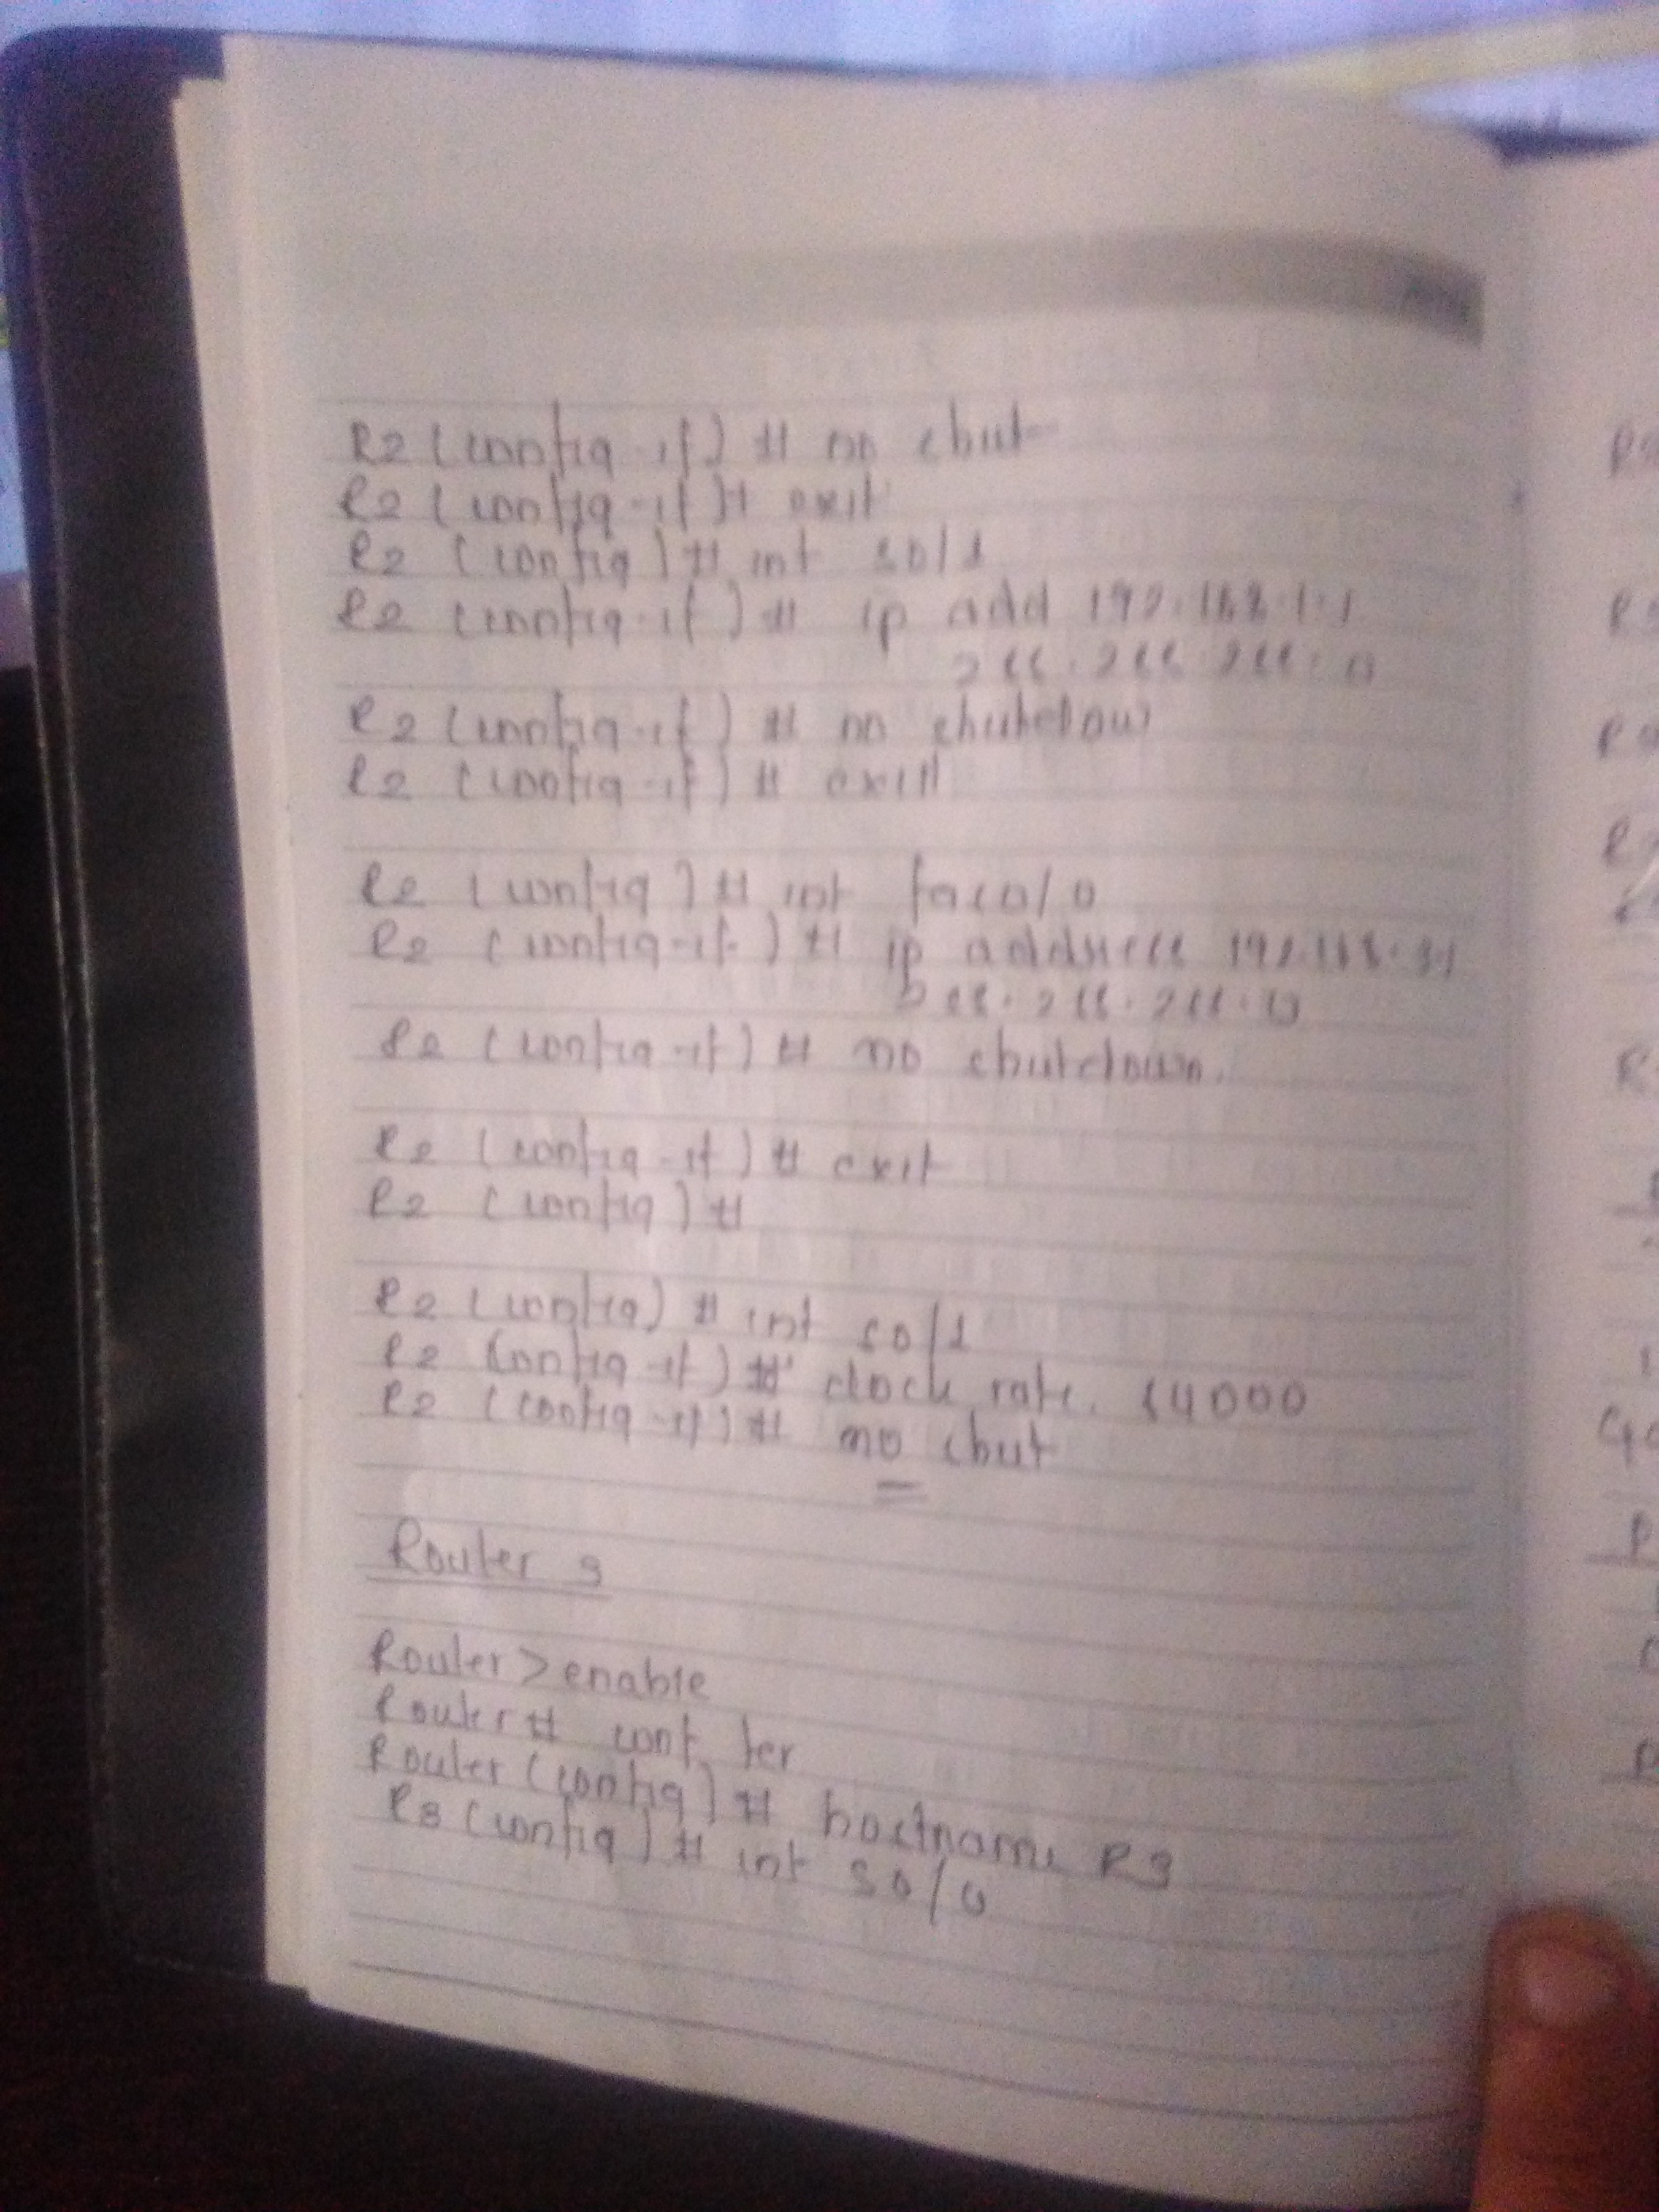 R2 (config-if) # no shut
R2 (config-if) # exit
R2 (config) # int s0/1
R2 (config-if) # ip add 192.168.1.1
255.255.255.0
R2 (config-if) # no shutdow
R2 (config-if) # exit
R2 (config) # int fa0/0
R2 (config-if) # ip address
255.255.255.0
R2 (config-if) # no shutdown.
R2 (config-if) # exit
R2 (config) #
R2 (config) # int s0/1
R2 (config-if) # clock rate. 64000
R2 (config-if) # no shut
Router 3
Router>enable
Router# conf ter
Router (config) # hostname R3
R3 (config) # int s0/0